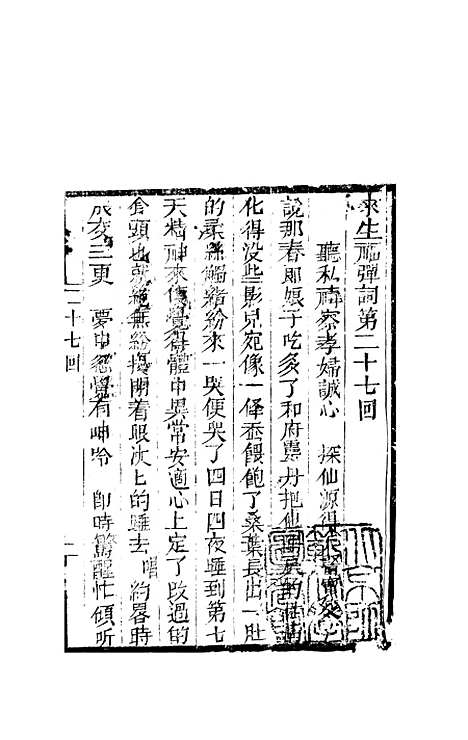 來生福彈詞第二十七回
聽私禱察孝婦誠心 探仙源得
說那春郎娘子吃多了和府靈丹把仙
化得没些影兒宛像一條蚕餵飽了桑葉長出一肚
的柔絲觸緒紛來一哭便哭了四日四夜睡到第七
天精神來復覺得體中異常安適心上定了改過的
念頭也就絕無紛擾閉着眼汝上的睡去 唱 約畧時
辰亥三更 夢中忽覺有呻吟 卽時驚醒忙傾听
二十七回
一